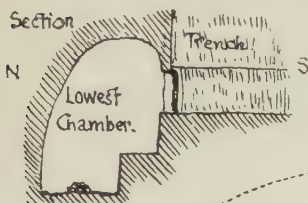 Section
Trench.
N
S
Lowest
Chamber.